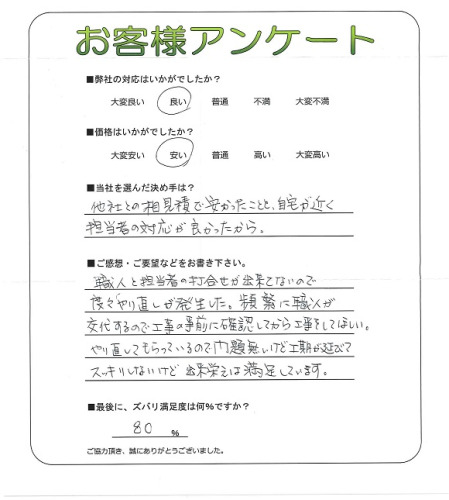 お客様アンケート
■弊社の対応はいかがでしたか？
大変良い 良い 普通 不満 大変不満
■価格はいかがでしたか？
大変安い 安い 普通 高い 大変高い
■当社を選んだ決め手は？
他社との相見積で安かったことと、自宅が近く
担当者の対応が良かったから。
■ご感想・ご要望などをお書き下さい。
職人と担当者の打合せが出来てないので
度々やり直しが発生した。頻繁に職人が
交代するので工事の事前に確認してから工事をしてほしい。
やり直してもらっているので問題無いけど工期が延びて
スッキリしないけど出来栄えは満足しています。
■最後に、ズバリ満足度は何%ですか？
80 %
ご協力頂き、誠にありがとうございました。